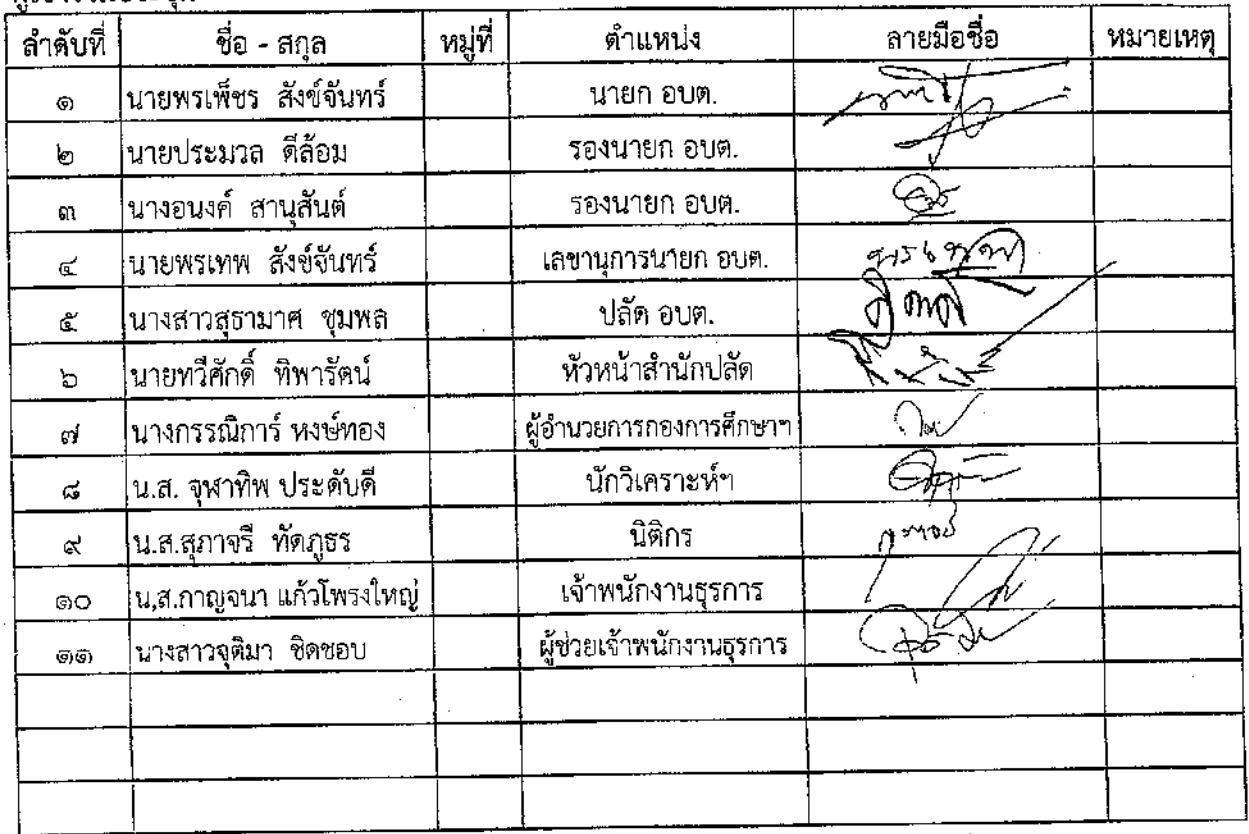 ลำดับที่ ชื่อ - สกุล หมู่ที่ ตำแหน่ง ลายมือชื่อ หมายเหตุ
๑ นายพรเพ็ชร สังข์จันทร์ นายก อบต.
๒ นายประมวล ดีล้อม รองนายก อบต.
๓ นางอนงค์ สานุสันต์ รองนายก อบต.
๔ นายพรเทพ สังข์จันทร์ เลขานุการนายก อบต. พรเทพ
๕ นางสาวสุธามาศ ชุมพล ปลัด อบต.
๖ นายทวีศักดิ์ ทิพารัตน์ หัวหน้าสำนักปลัด
๗ นางกรรณิการ์ หงษ์ทอง ผู้อำนวยการกองการศึกษาฯ
๘ น.ส. จุฬาทิพ ประดับดี นักวิเคราะห์ฯ
๙ น.ส.สุภาจรี ทัดภูธร นิติกร
๑๐ น,ส.กาญจนา แก้วโพรงใหญ่ เจ้าพนักงานธุรการ
๑๑ นางสาวจุติมา ชิดชอบ ผู้ช่วยเจ้าพนักงานธุรการ